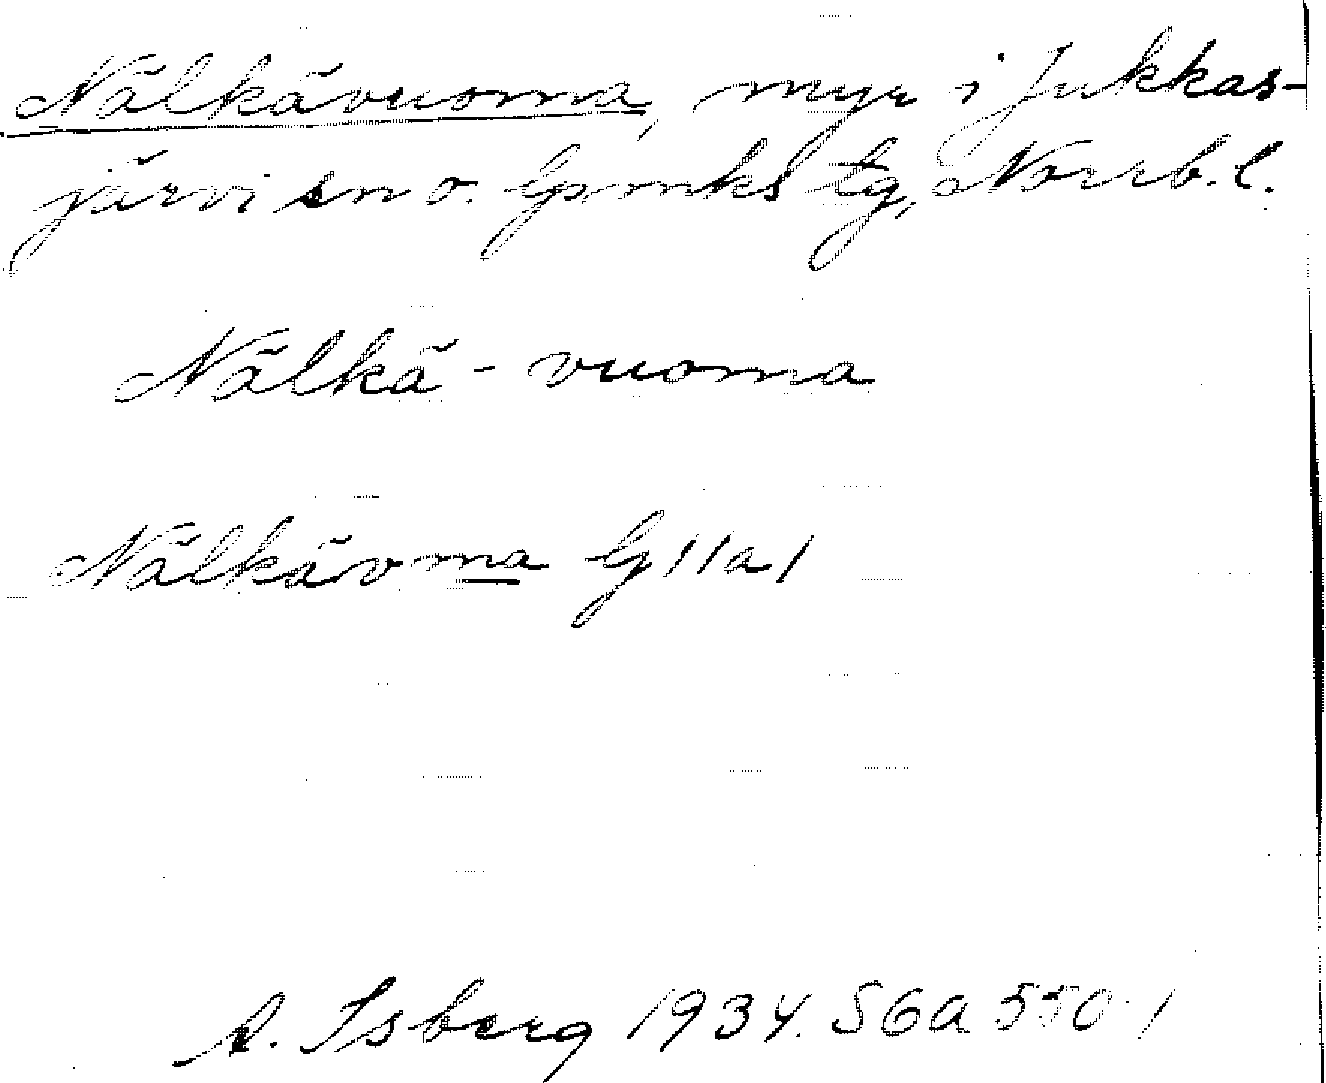 Nälkävuoma, myr i Jukkas-
järvi sn o. lpmks tg, Norrb. l.
Nälkä - vuoma
Nälkävma G 11a1
A. Isberg 1934. SGA 550:1